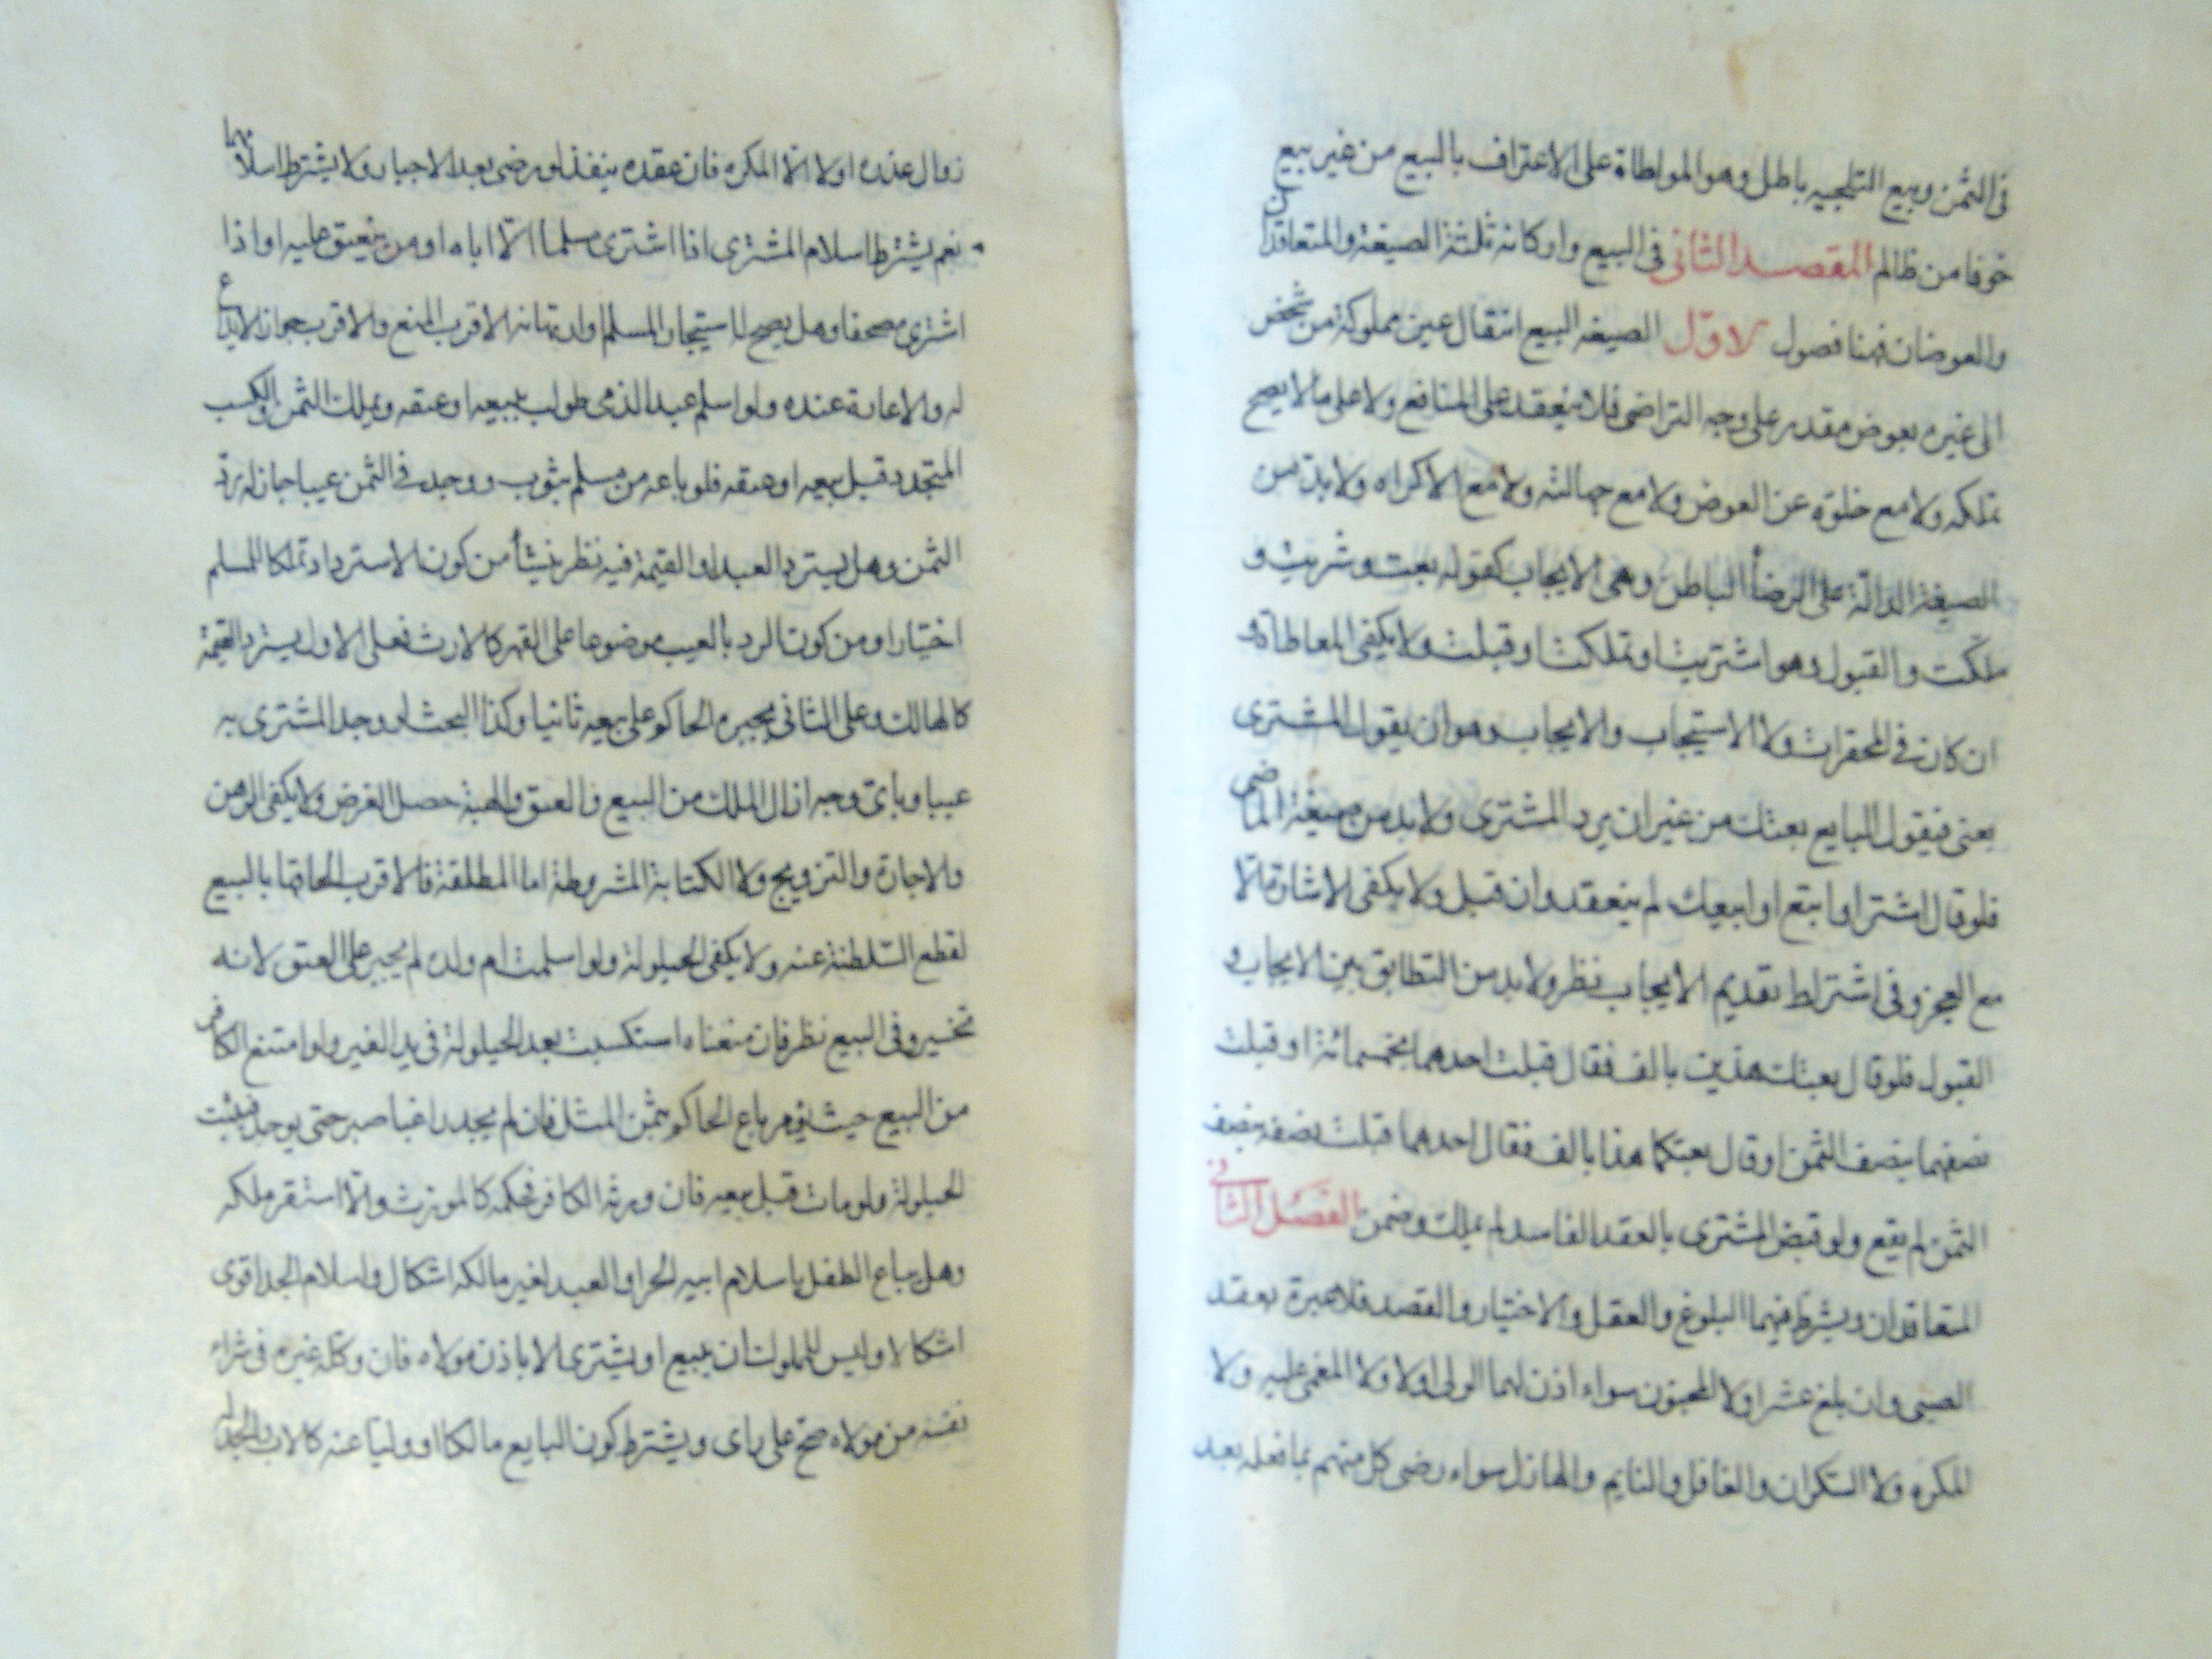 في الثمن وبيع التلجيه باطل وهو المواطاة على الاعتراف بالبيع من غير بيع
خوفا من ظالم المقصد الثاني في البيع واركانه ثلثة الصيغة والمتعاقدان
والعوضان فهنا فصول الاول الصيغه البيع انتقال عين مملوكة من شخص
الى غيره بعوض مقدر على وجه التراضي فلا ينعقد على المنافع ولا على ما لا يصح
تملكه ولا مع خلوه عن العوض ولا مع جهالته ولا مع الاكراه ولا بد من
الصيغة الدالة على الرضا الباطن وهي الايجاب كقوله بعت وشريت و
ملكت والقبول وهو اشتريت او تملكت او قبلت ولا يكفي المعاطاة و
ان كان في المحقرات ولا الاستيجاب والايجاب وهو ان يقول المشتري
بعني فيقول البايع بعتك من غير ان يرد المشتري ولا بد من صيغة الماضي
فلو قال اشتر او ابتع او ابيعك لم ينعقد وان قبل ولا يكفي الاشارة الا
مع العجز وفي اشتراط تقديم الايجاب نظر ولا بد من التطابق بين الايجاب و
القبول فلو قال بعتك هذين بالف فقال قبلت احدهما بخمسمائة او قبلت
نصفهما بنصف الثمن او قال بعتكما هذا بالف فقال احدهما قبلت نصفه بنصف
الثمن لم يقع ولو قبض المشتري بالعقد الفاسد لم يملك وضمن الفصل الثاني
المتعاقدان ويشترط فيهما البلوغ والعقل والاختيار والقصد فلا عبرة بعقد
الصبي وان بلغ عشرا ولا المجنون سواء اذن لهما الولي او لا ولا المغمى عليه ولا
المكره ولا السكران والغافل والنايم والهازل سواء رضي كل منهم بما فعله بعد
زوال عذره او لا الا المكره فان عقده ينفذ لو رضي بعد الاجبار ولا يشترط اسلامهما
نعم يشترط اسلام المشتري اذا اشترى مسلما الا اباه او من ينعتق عليه او اذا
اشترى مصحفا وهل يصح له استيجار المسلم وارتهانه الاقرب المنع والاقرب جواز الايداع
له والاعارة عنده ولو اسلم عبد الذمي طولب ببيعه او عتقه ويملك الثمن والكسب
المتجدد قبل بيعه او عتقه فلو باعه من مسلم بثوب ووجد في الثمن عيبا جاز له رد
الثمن وهل يسترد العبد او القيمة فيه نظر ينشأ من كون الاسترداد تملكا للمسلم
اختيارا ومن كون الرد بالعيب موضوعا على القهر كالارث فعلى الاول يسترد القيمة
كالهالك وعلى الثاني يجبره الحاكم على بيعه ثانيا وكذا البحث لو وجد المشتري به
عيبا وباي وجه ازال الملك من البيع والعتق والهبة حصل الغرض ولا يكفي الرهن
والاجارة والتزويج ولا الكتابة المشروطة اما المطلقة فالاقرب الحاقها بالبيع
لقطع السلطنة عنه ولا يكفي الحيلولة ولو اسلمت ام ولده لم يجبر على العتق لانه
تخسير وفي البيع نظر فان منعناه استكسبت بعد الحيلولة في يد الغير ولو امتنع الكافر
من البيع حيث يؤمر باع الحاكم بثمن المثل فان لم يجد راغبا صبر حتى يوجد فيثبت
الحيلولة ولو مات قبل بيعه فان ورثه الكافر فحكمه كالمورث والا استقر ملكه
وهل يباع الطفل باسلام ابيه الحر او العبد لغير مالكه اشكال واسلام الجد اقوى
اشكالا وليس للمملوك ان يبيع او يشتري الا باذن مولاه فان وكله غيره في شراء
نفسه من مولاه صح على راى ويشترط كون البايع مالكا او وليا عنه كالاب والجد له